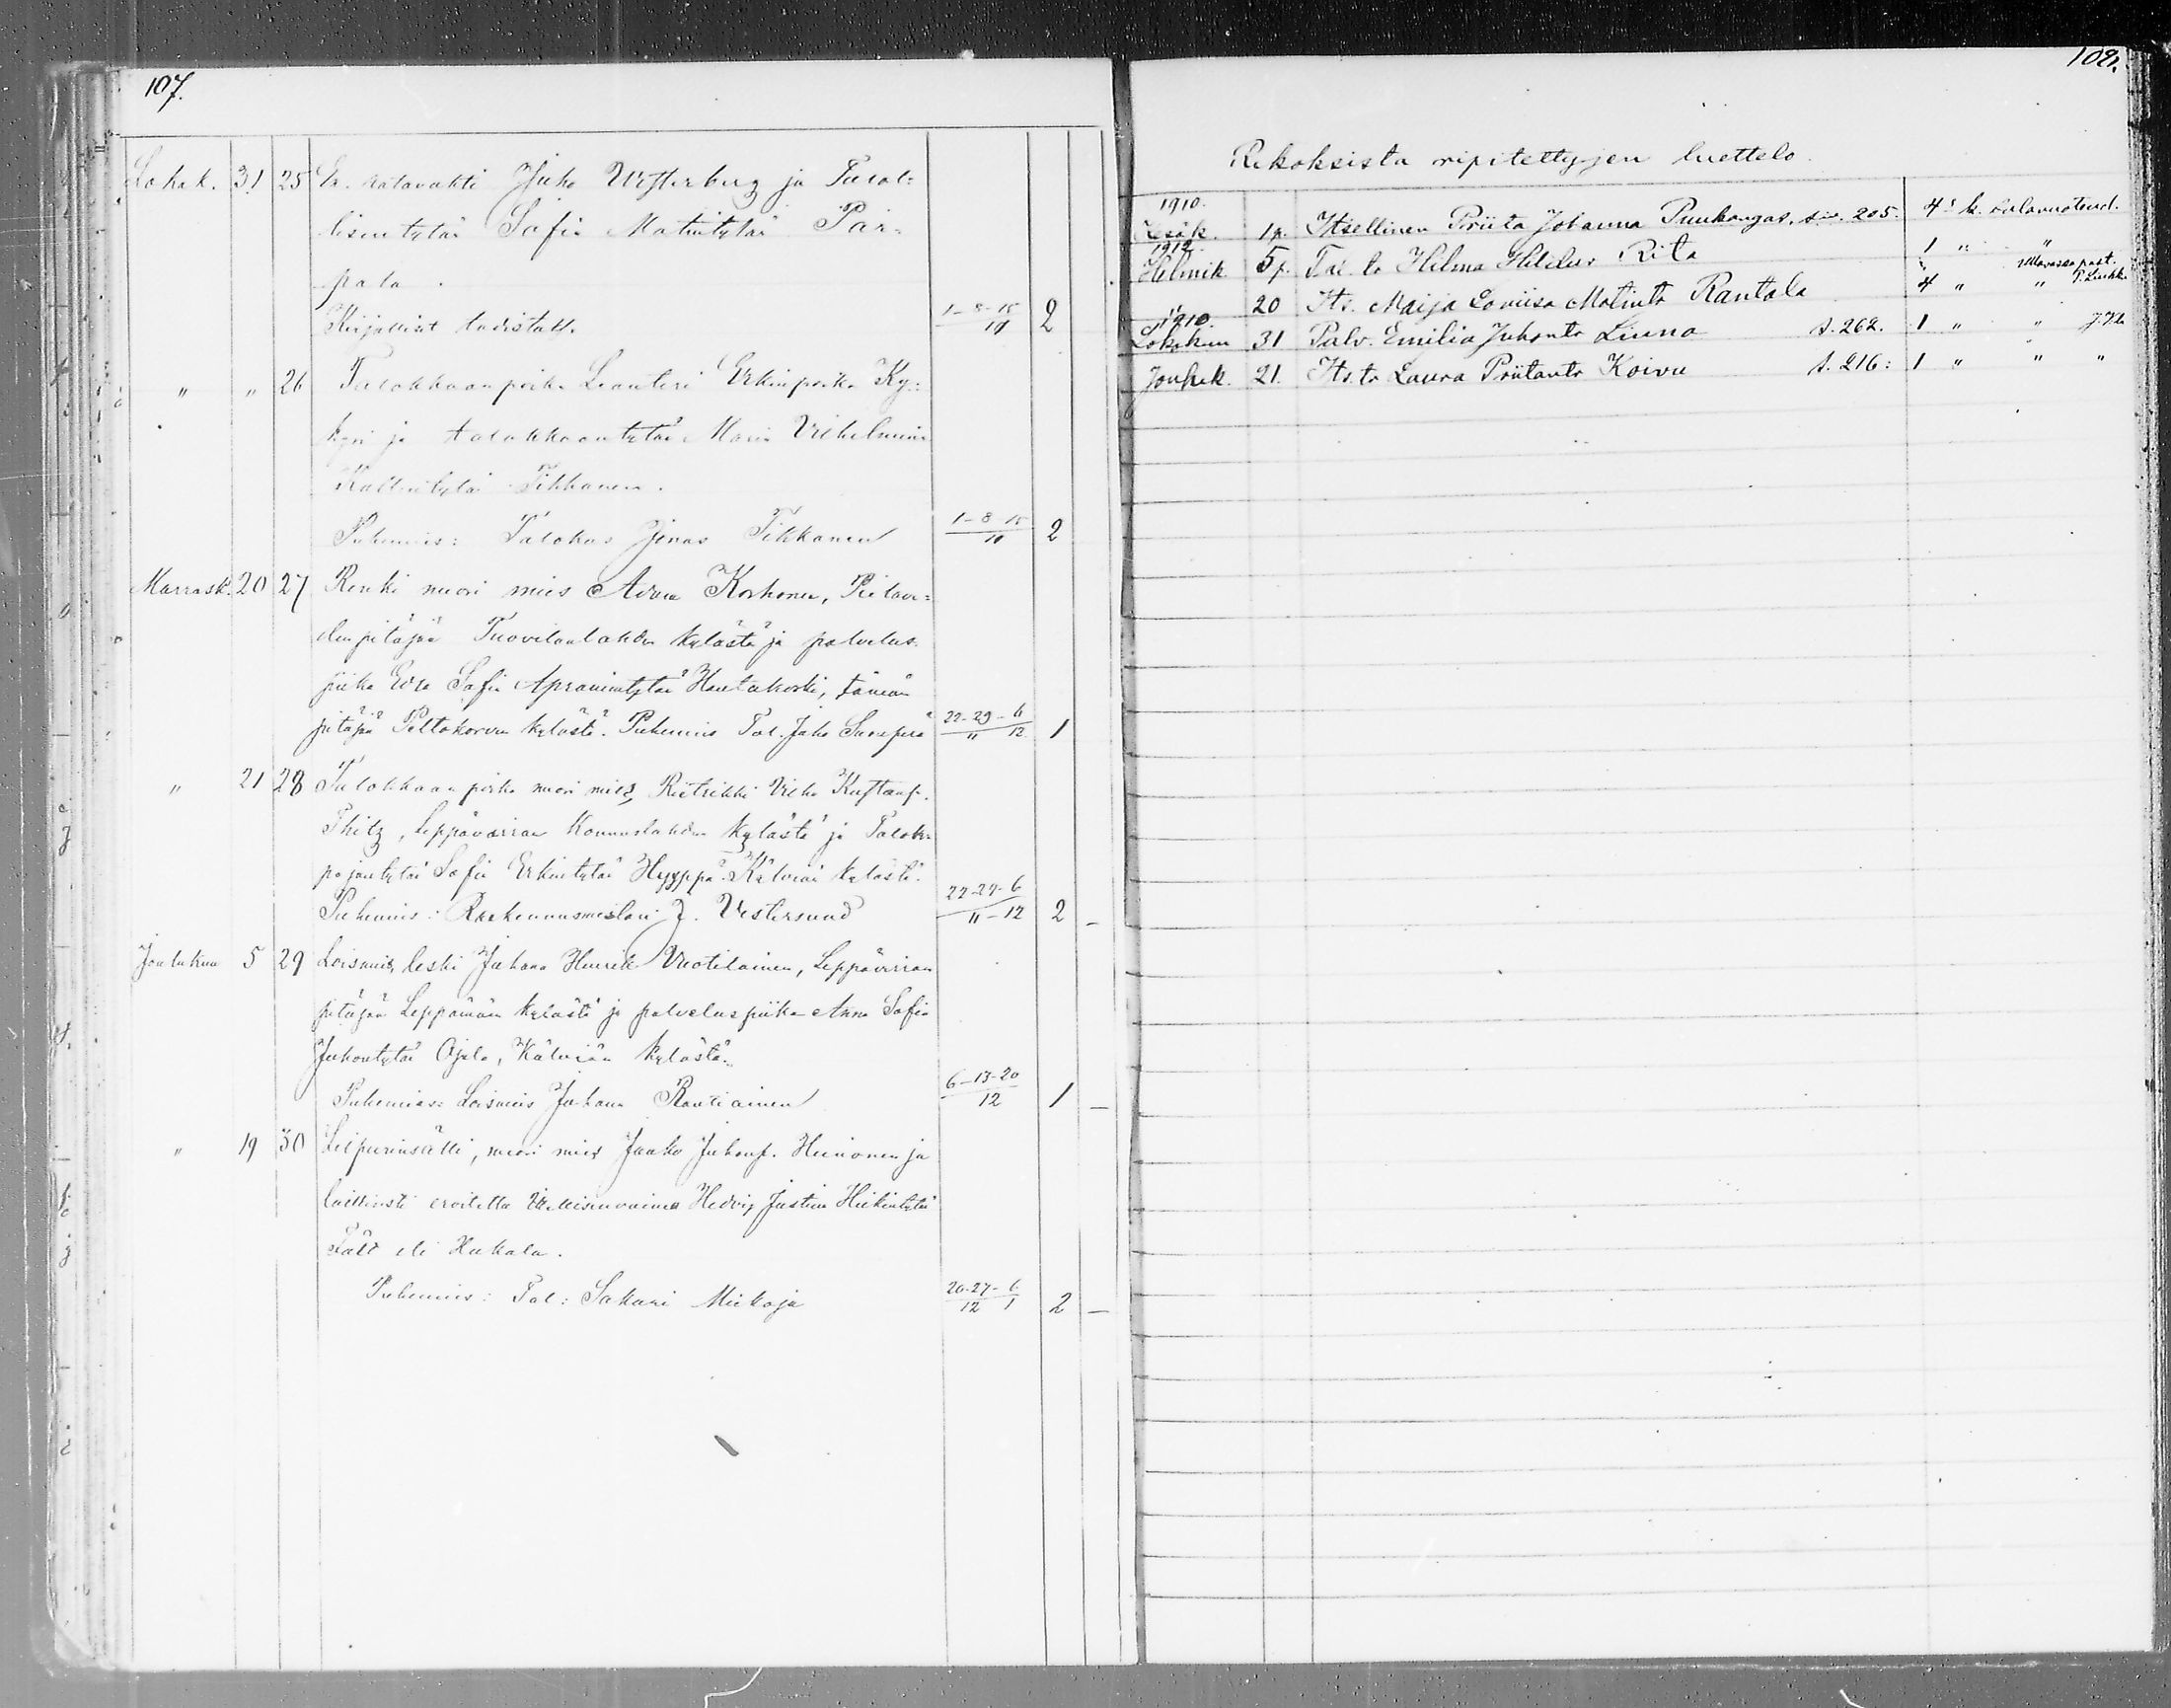 107.
Lokak. 31 25 Er. ratavahti Juho Westerberg ja Talol-
lisentytär Sofia Matintytär Pär-
pala.
Kirjalliset todistukt. 1-8-15/11 2
" " 26 Talokkaanpoika Leanteri Erkinpoika Ky-
kyri ja talokkaantytär Maria Vilhelmiina
Kallentytär Tikkanen.
Puhemies: Talokas Jonas Tikkanen 1-8-15/11 2
Marrask. 20 27 Renki nuori mies Korhonen, Pielave-
den pitäjän Tuovilanlahden kylästä ja palvelus-
piika Eeva Sofia Apramintytär Hautakoski, tämän
pitäjän Peltokorvan kylästä. Puhemies Tal. Juho 22-29-6/11 12 1
" 21 28 Talokkaan poika nuori mies, Rietrikki Vilho Kustaanp.
Thitz, Leppävirran Konnuslahden kylästä ja Talok-
pojantytär Sofia Erkintytär Hyyppä Kälviän kylästä.
Puhemies: Rakennusmestari J. Vestersund 22-29-6/11-12 2 -
Joulukuu 5 29 Loismies, leski Juhana Henrik Vuotilainen, Leppävirran
pitäjän Leppämäen kylästä ja palveluspiika Anna Sofia
Juhontytär Ojala, Kälviän kylästä.
Puhemies: Loismies Juhana Rautiainen 6-13-20/12 1 -
" 19 30 Leipurinsälli, nuori mies Jaako Juhonp. Heinonen ja
laillisesti eroitettu vaimo Hedvig Justiina Heikintytär
Fält eli Hakala.
Puhemies: Tal: Sakari Mikoja 20-27-6/12 1 2 -
108.
Rikoksista ripitettyjen luettelo.
1910.
Kesäk. 1p. Itsellinen Priita Johanna Puukangas, siv. 205. 4s k. salavuoteud.
1912.
Helmik 5p. Tal. tr Hilma Hildur Rita 1 " "
" 20 Its. Maija Loviisa Matintr Rantala 4 " "
1910.
Lokakuu 31 Palv. Emilia Juhontr Linna s. 262. 1 " "
Jouluk. 21. Its. tr Laura Priitantr Koivu s. 216: 1 " " "